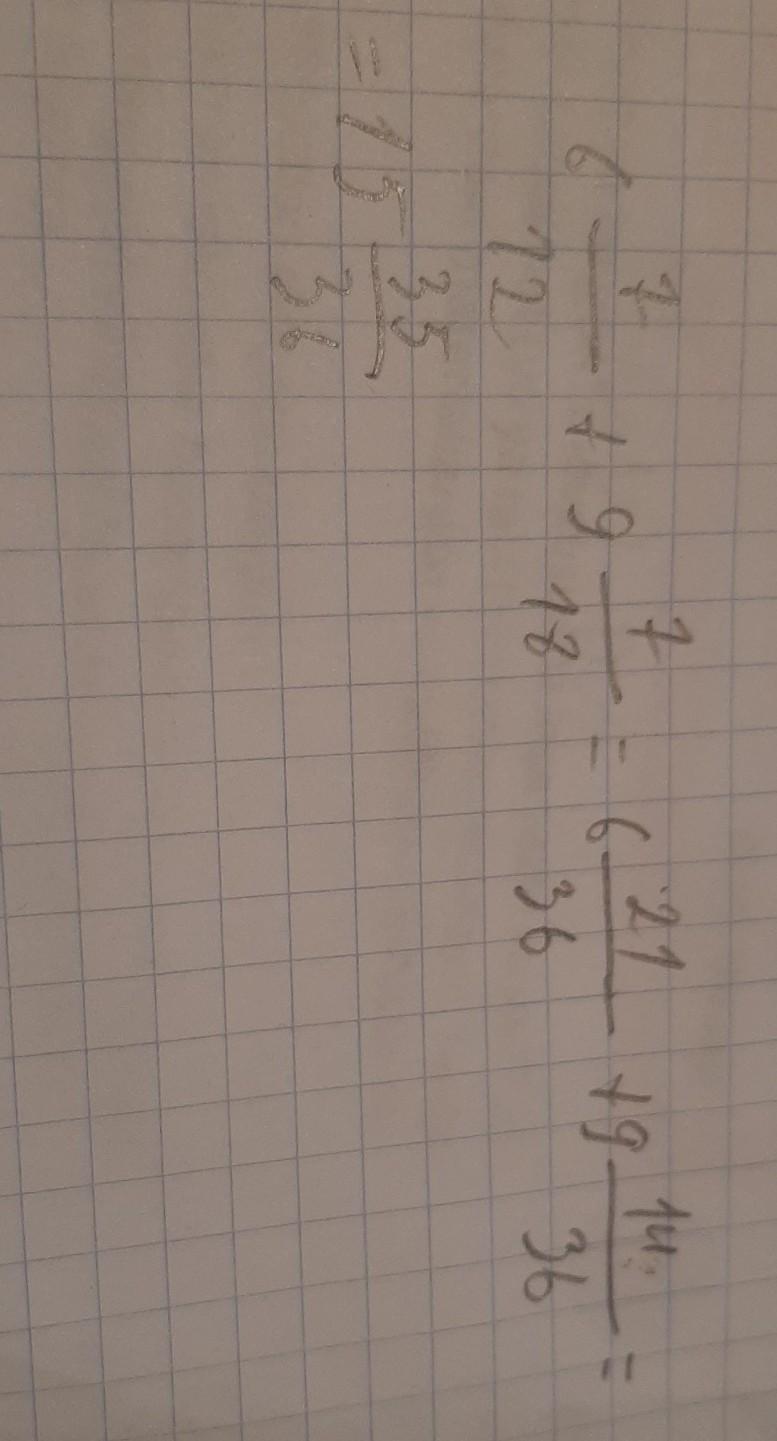 6 7/12 + 9 7/18 = 6 21/36 + 9 14/36 =
= 15 35/36